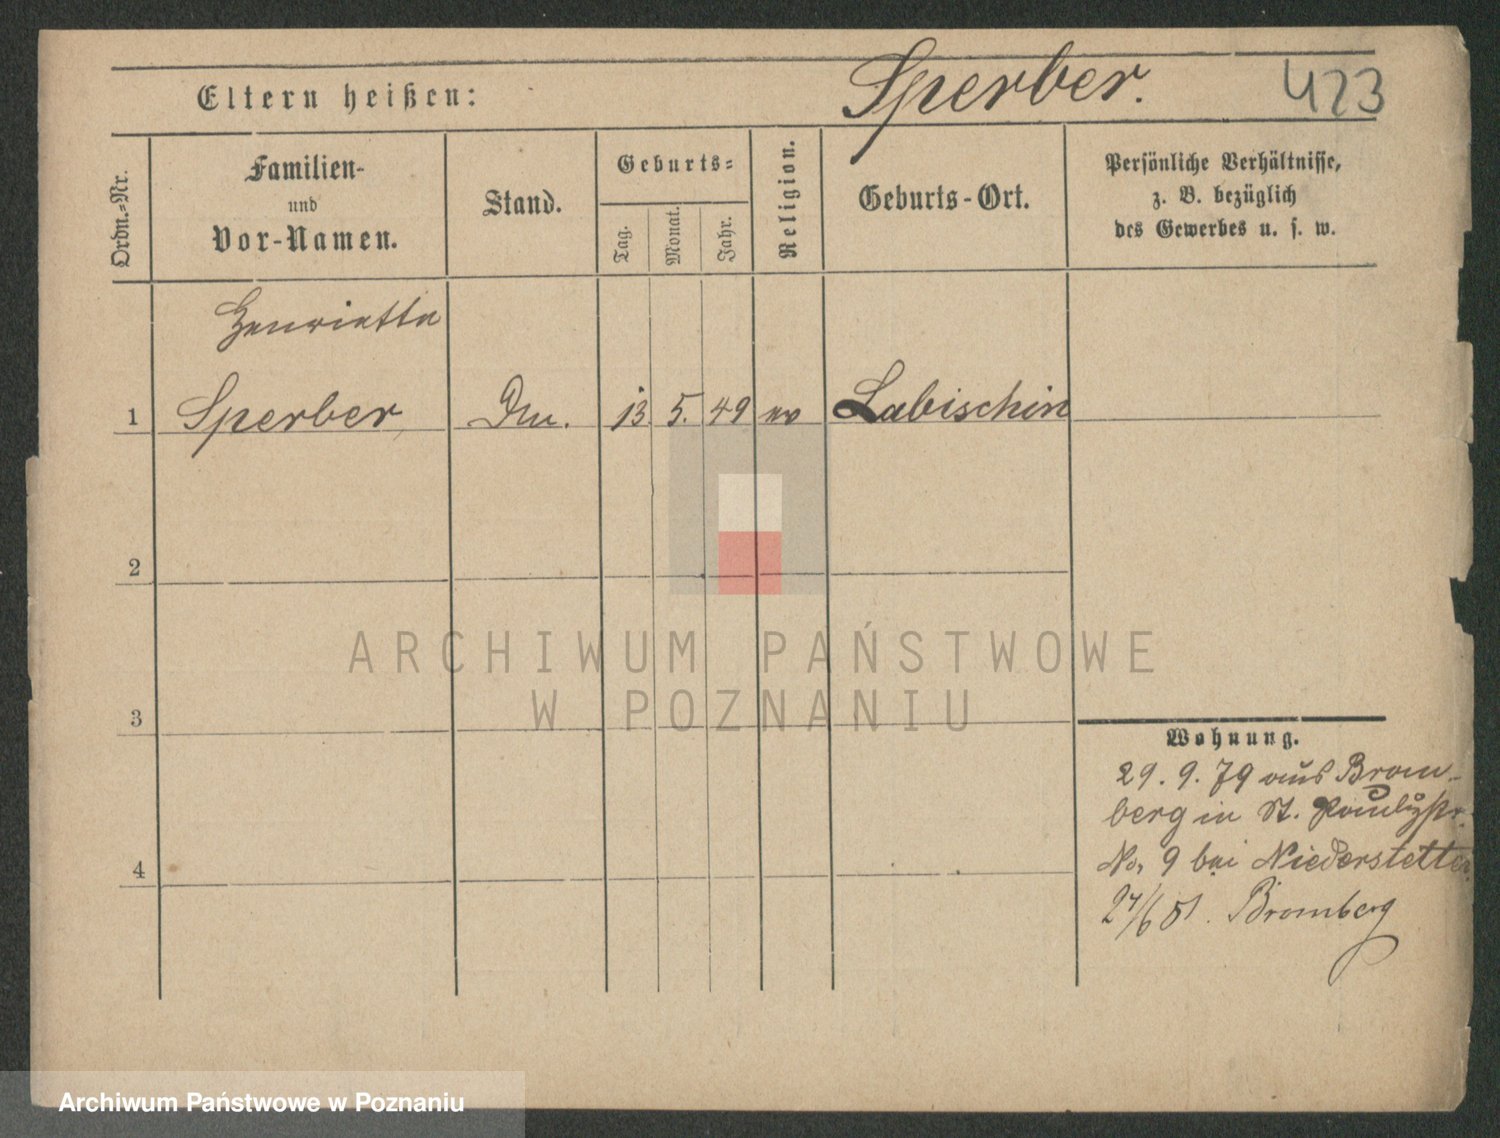 Sperber. 423
Eltern heißen:
Ordn.-Nr.
Familien-
und
Vor-Namen.
Stand.
Geburts-
Tag.
Monat.
Jahr.
Religion.
Geburts-Ort.
Persönliche Verhältnisse,
z. B. bezüglich
des Gewerbes u. s. w.
Henriette
1 Sperber 13. 5. 49 ev Labischin
2
3
4
Wohnung.
29. 9. 79 aus Brom-
berg in St.
No. 9 bei Niederstetter
Bromberg
ARCHIWUM PAŃSTWOWE
W POZNANIU
Archiwum Państwowe w Poznaniu